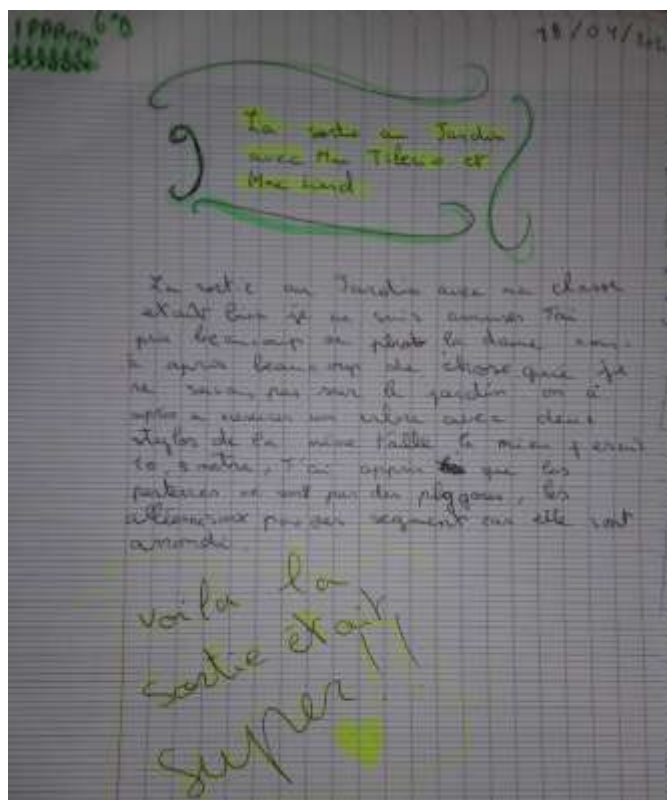 6°B
18/04/
La sortie au Jardin
avec Mme et
Mme
La sortie au Jardin avec ma classe
etait bien je me suis amuser J'ai
pris beaucoup de photo la dame nous
a appris beaucoup de chose que je
ne savais pas sur le jardin on à
appris a mesurer un arbre avec deux
stylos de la même taille le mien fesait
10,5 metre, J'ai appris que les
parterres ne sont pas des polygones, les
pas des segment car elle sont
arrondi.
voila la
sortie etait
super !!